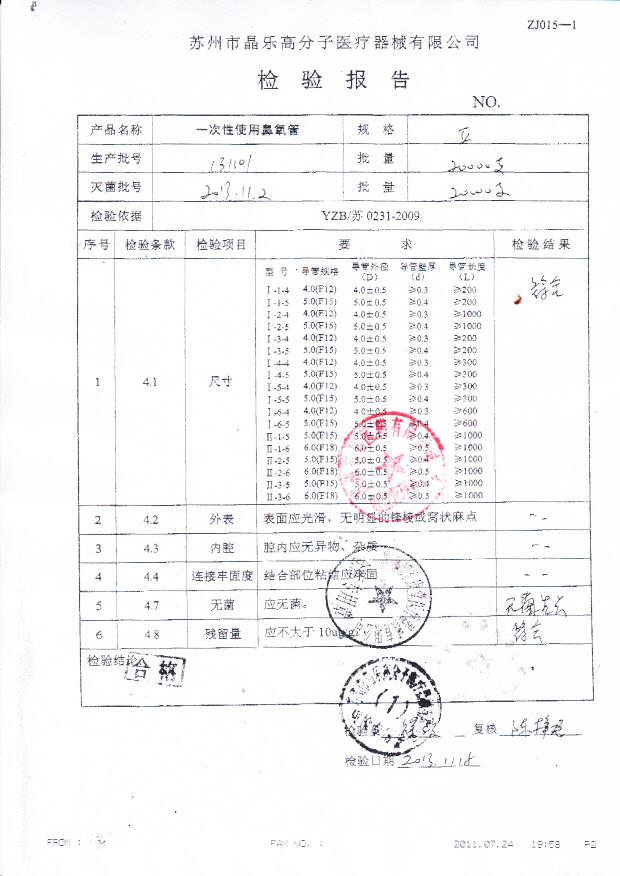 ZJ015—1
苏州市晶乐高分子医疗器械有限公司
检 验 报 告
NO.
产品名称 一次性使用鼻氧管 规 格 II
生产批号 131101 批 量 20000支
灭菌批号 2013.11.2 批 量 20000支
检验依据 YZB/苏 0231-2009
序号 检验条款 检验项目 要 求 检验结果
型 号 导管规格 导管外径(D) 导管壁厚(d) 导管长度(L)
1 4.1 尺寸 符合
Ⅰ-1-4 4.0(F12) 4.0±0.5 ≥0.3 ≥200
Ⅰ-1-5 5.0(F15) 5.0±0.5 ≥0.4 ≥200
Ⅰ-2-4 4.0(F12) 4.0±0.5 ≥0.3 ≥1000
Ⅰ-2-5 5.0(F15) 5.0±0.5 ≥0.4 ≥1000
Ⅰ-3-4 4.0(F12) 4.0±0.5 ≥0.3 ≥200
Ⅰ-3-5 5.0(F15) 5.0±0.5 ≥0.4 ≥200
Ⅰ-4-4 4.0(F12) 4.0±0.5 ≥0.3 ≥300
Ⅰ-4-5 5.0(F15) 5.0±0.5 ≥0.4 ≥300
Ⅰ-5-4 4.0(F12) 4.0±0.5 ≥0.3 ≥300
Ⅰ-5-5 5.0(F15) 5.0±0.5 ≥0.4 ≥300
Ⅰ-6-4 4.0(F12) 4.0±0.5 ≥0.3 ≥600
Ⅰ-6-5 5.0(F15) 5.0±0.5 ≥0.4 ≥600
Ⅱ-1-5 5.0(F15) 5.0±0.5 ≥0.4 ≥1000
Ⅱ-1-6 6.0(F18) 6.0±0.5 ≥0.5 ≥1000
Ⅱ-2-5 5.0(F15) 5.0±0.5 ≥0.4 ≥1000
Ⅱ-2-6 6.0(F18) 6.0±0.5 ≥0.5 ≥1000
Ⅱ-3-5 5.0(F15) 5.0±0.5 ≥0.4 ≥1000
Ⅱ-3-6 6.0(F18) 6.0±0.5 ≥0.5 ≥1000
2 4.2 外表 表面应光滑，无明显的锋棱或窝状麻点
3 4.3 内腔 腔内应无异物、杂质
4 4.4 连接牢固度 结合部位粘结应牢固
5 4.7 无菌 应无菌。
6 4.8 残留量 应不大于10ug/g 符合
检验结论 合格
(1)
检验员 复核
检验日期 2013.11.18
FROM : FAX NO. : 2011.07.24 19:58 P2